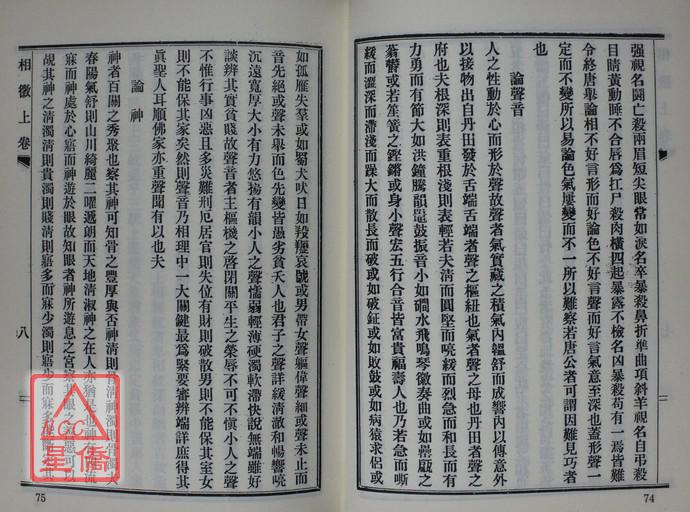 强視名鬭亡殺兩眉短尖眼常如淚名卒暴殺鼻折準曲項斜羊視名自弔殺
目睛黃動睡不合唇為扛尸殺肉橫四起暴露不檢名凶暴殺苟有一焉皆難
令終唐舉論相不好言形而好論色不好言聲而好言氣意至深也蓋形聲一
定而不變所以易論色氣屢變而不一所以難察若唐公者可謂因難見巧者
也
論聲音
人之性動於心而形於聲故聲者氣實藏之積氣內韞舒而成響內以傳意外
以接物出自丹田發於舌端舌端聲之樞紐也氣者聲之母也丹田者聲之
府也夫根深則表重根淺則表輕若夫清而圓堅而喨緩而烈急而和長而有
力勇而有節大如洪鐘騰韻鼉鼓振音小如磵水飛鳴琴徽奏曲或如
或若笙簧之鏗鏘或身小聲宏五行合音皆富貴福壽人也乃若急而嘶
緩而澀深而滯淺而躁大而散長而破或如破鉦或如敗鼓或如病猿求侶或
如孤雁失羣或如蜀犬吠日如羖䍽哀號或男帶女聲軀偉聲細或聲未止而
音先絕或聲未舉而色先變皆愚劣貧夭人也君子之聲詳緩清澈和暢響喨
沉遠寬厚大小有力悠揚有韻小人之聲懦弱輕薄硬濁軟滯快說無端雖好
談辨其實貧賤故聲音者主樞機之啓閉關平生之榮辱不可不愼小人之聲
不惟行事凶惑且多災難刑厄居官則失位有財則破散男則不能保其室女
則不能保其家矣然則聲音乃相理中一大關鍵最為緊要審辨端詳庶得其
眞聖人耳順佛家亦重聲聞有以也夫
論神
神者百關之秀聚也察其神可知骨之豐厚與否神清則
春陽氣舒則山川綺麗二曜遞朗而天地清淑神之在人亦猶是也神
寐而神處於心寤而神遊於眼故知眼者神所遊息之宮察其眼之
覘其神之清濁清則貴濁則賤清則寤多而寐少濁則寤少而寐多
相徵上卷
八
75
74
NCC
星僑